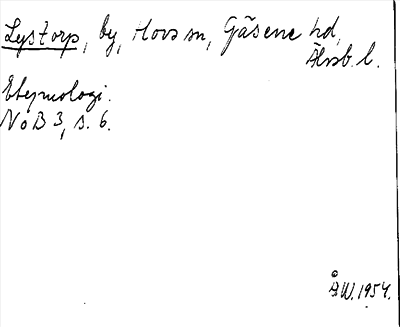 Lystorp, by, Hovs sn, Gäsene hd,
Älvsb. l.
Etymologi.
NoB 3, s. 6.
ÅW. 1954.